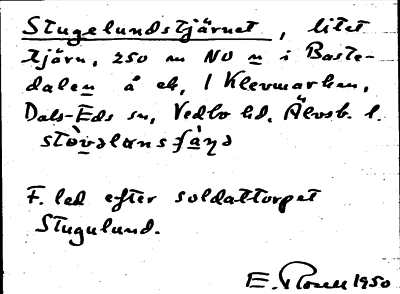 Stugelundstjärnet, litet
tjärn, 250 m NO n i Baste-
dalen å ek, I Klevmarken,
Dals-Eds sn, Vedbo hd. Älvsb. l.
F. led efter soldattorpet
Stugulund.
E. 1950